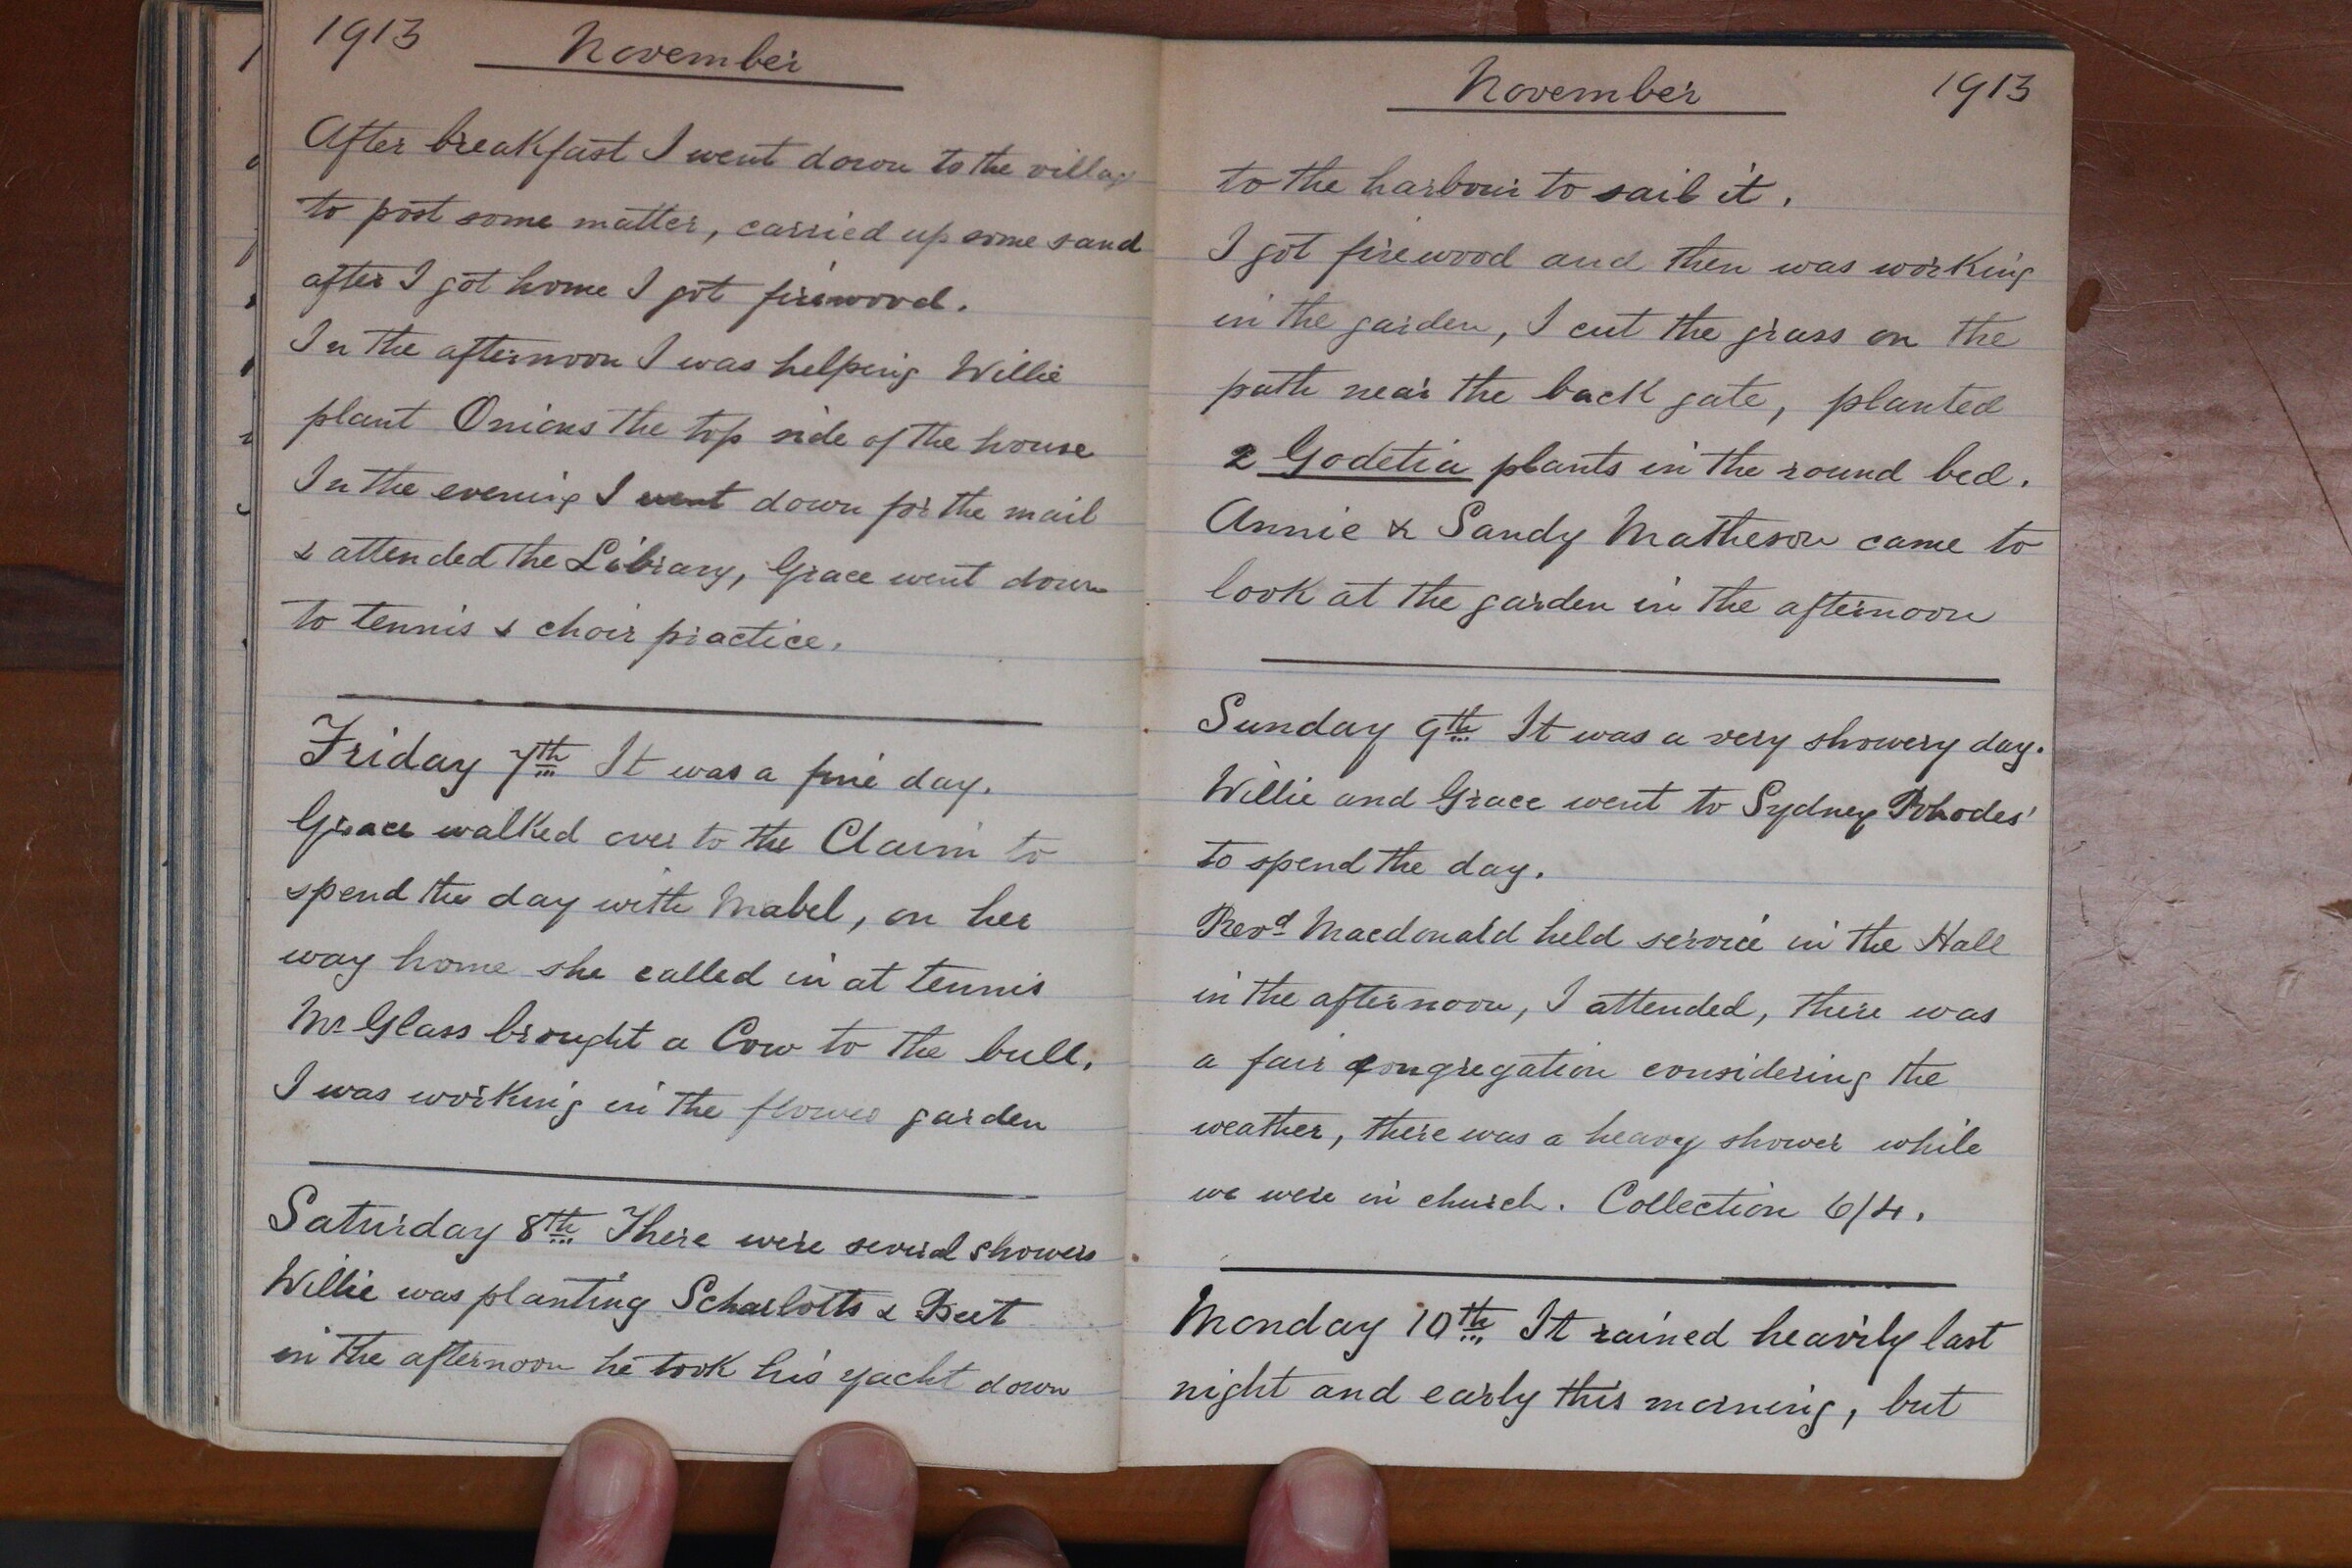 1913 November
After breakfast I went down to the villag
to post some matter, carried up some sand
after I got home I got firewood.
In the afternoon I was helping Willie
plant Onions the top side of the house
In the evening I went down for the mail
& attended the Library, Grace went down
to tennis & choir practice.
Friday 7th It was a fine day.
Grace walked over to the Claim to
spend the day with Mabel, on her
way home she called in at tennis
Mr Glass brought a Cow to the bull.
I was working in the flower garden
Saturday 8th There were several showers
Willie was planting Scharlotts & Beet
in the afternoon he took his yacht down
November 1913
to the harbour to sail it.
I got firewood and then was working
in the garden, I cut the grass on the
path near the back gate, planted
2 Godetia plants in the round bed.
Annie & Sandy Matheson came to
look at the garden in the afternoon
Sunday 9th It was a very showery day.
Willie and Grace went to Sydney Rhodes'
to spend the day.
Revd Macdonald held service in the Hall
in the afternoon, I attended, there was
a fair congregation considering the
weather, there was a heavy shower while
we were in church. Collection 6/4.
Monday 10th It rained heavily last
night and early this morning, but